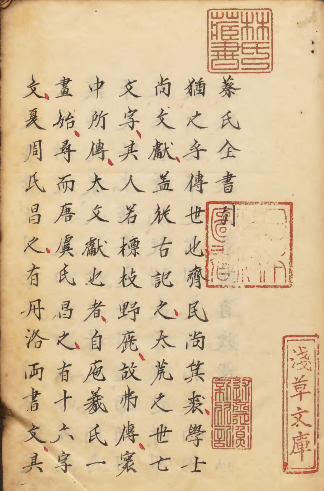 林氏藏書
蔡氏全書引
猶之乎傳世也齊民尚其裘學士
尚文獻蓋從古記之太荒之世亡
文字其人若標枝野鹿故弗傳寰
中所傳太文獻也者自庖羲氏一
畫始尋而唐虞氏昌之有十六字
文夏周氏昌之有丹洛兩書文具
淺草文庫